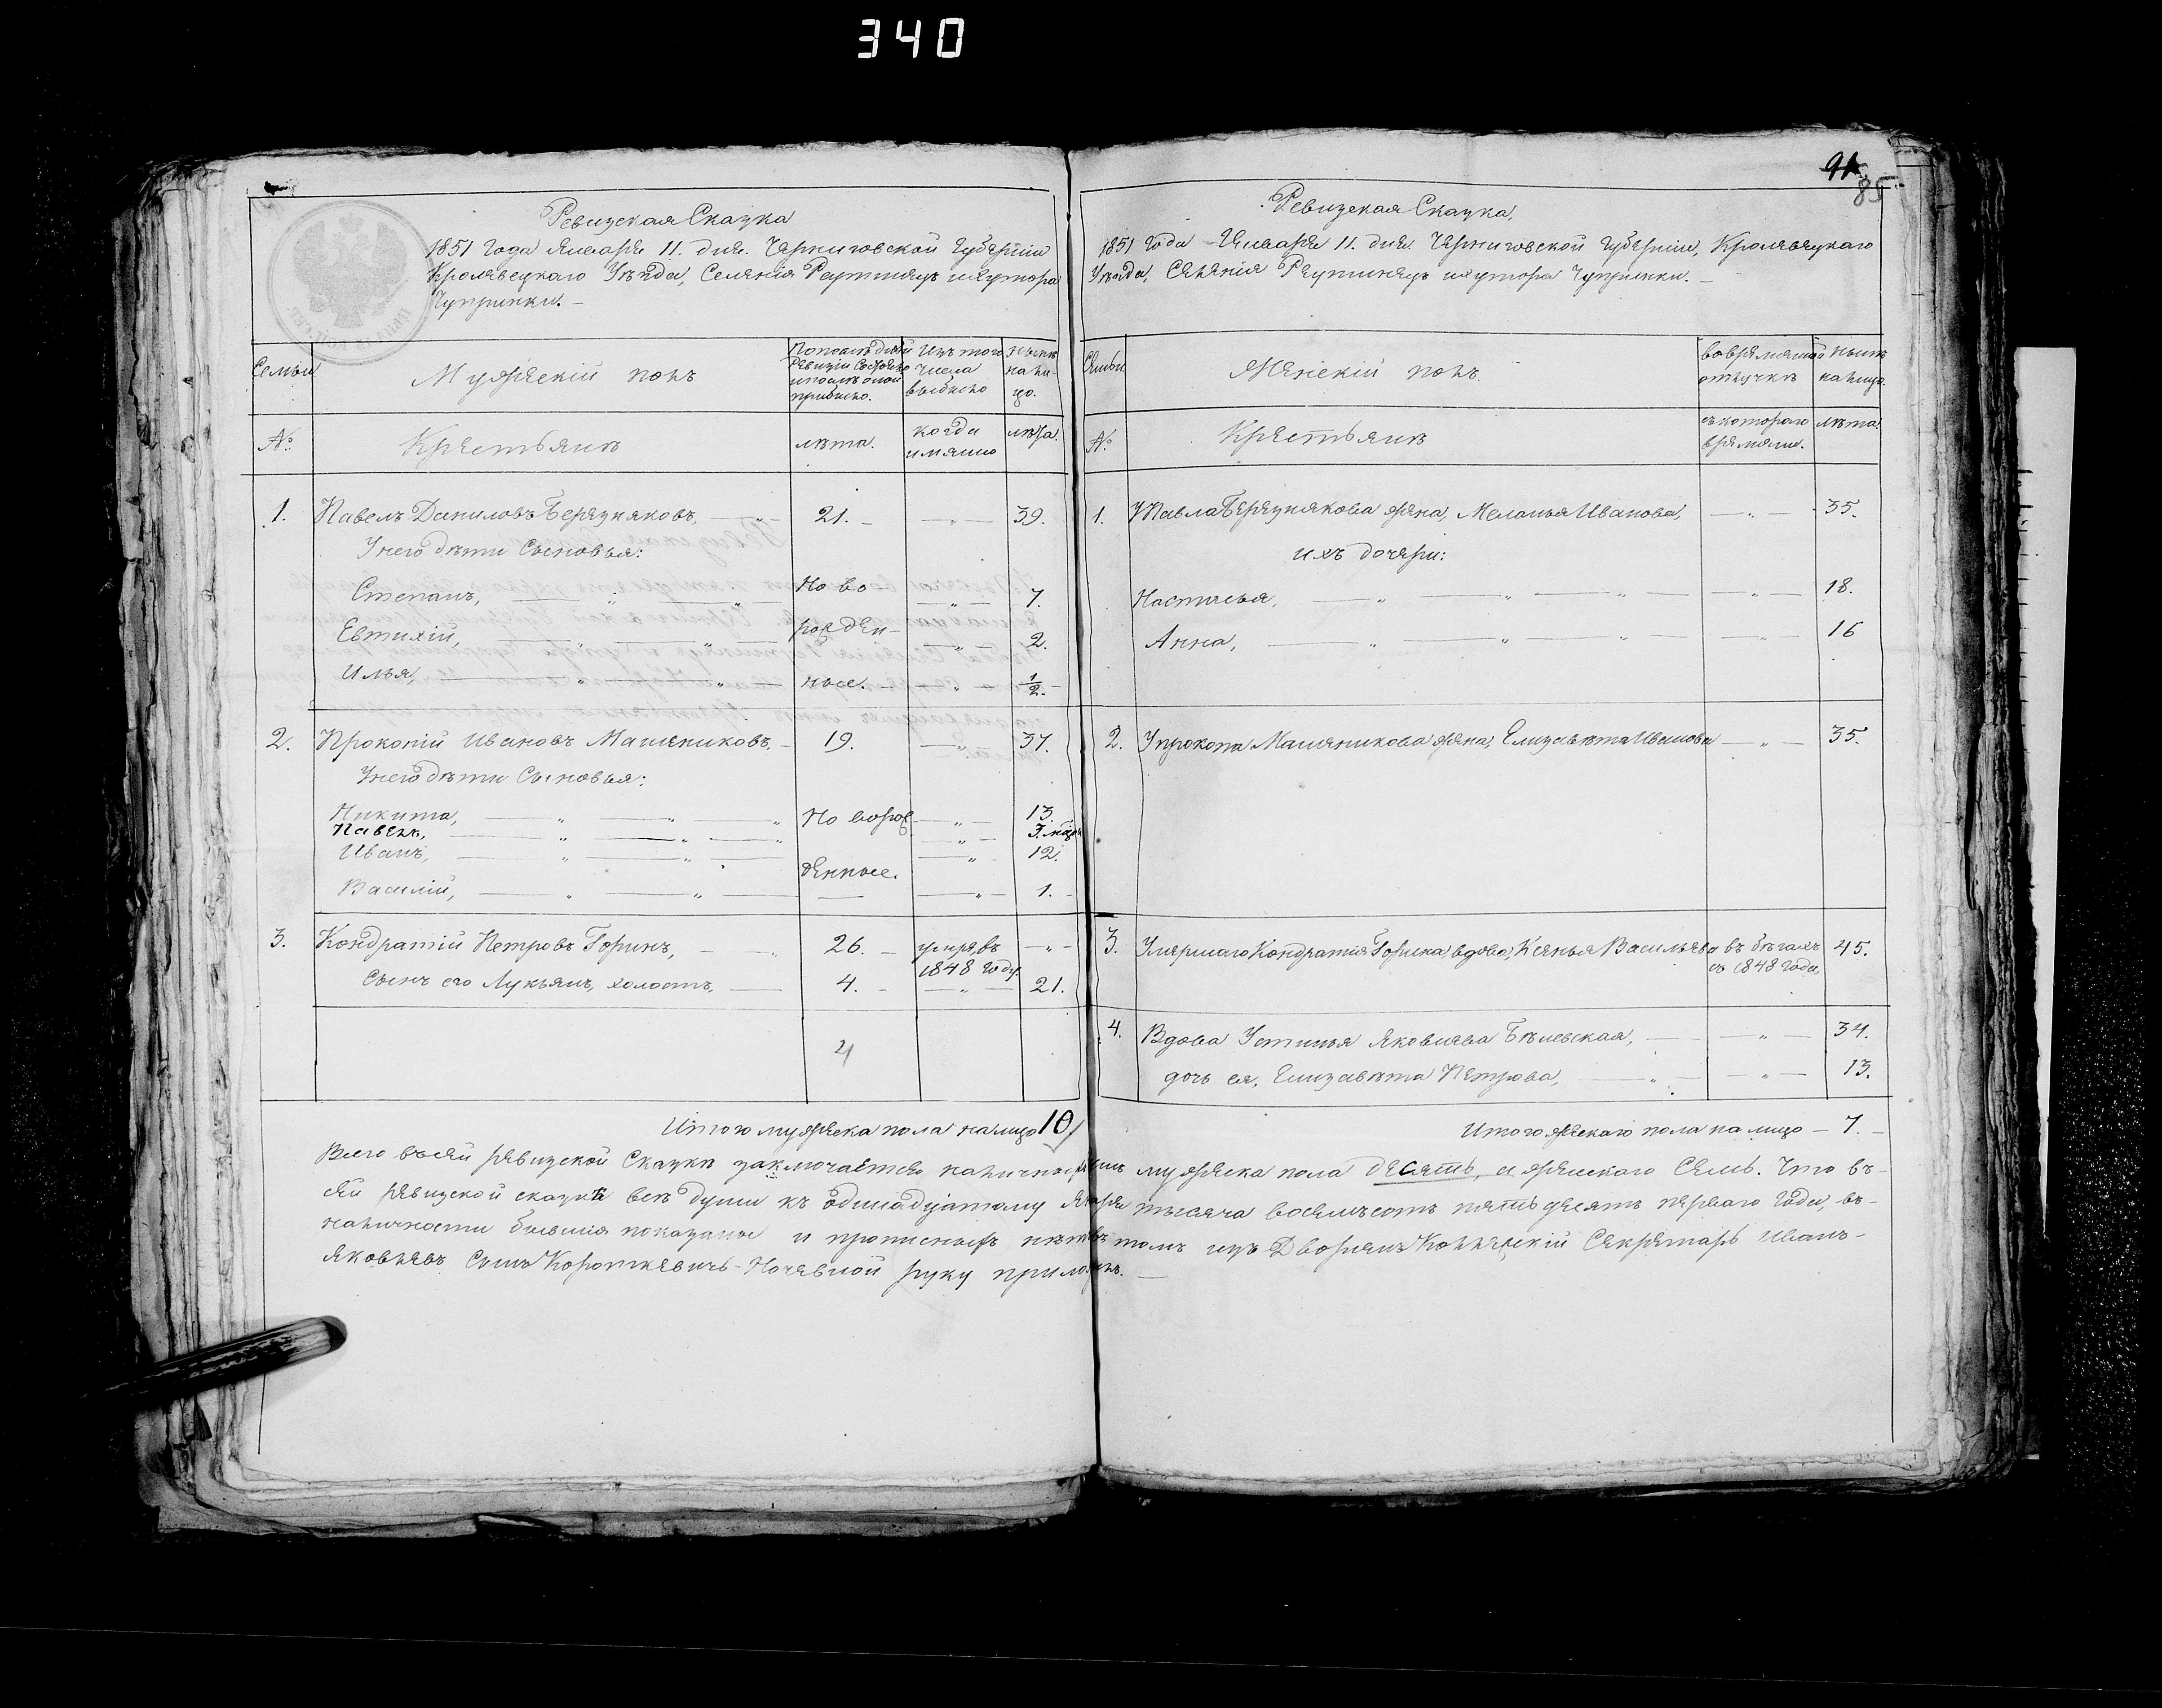 340
Ревизская Сказка
1851 года Января 11. дня. Черниговской Губернiи
Кролевецкаго Уѣзда, Селенiя Реутинецъ ихутора
Чуприnки. –
Семьи
Мужескiй полъ
Попослѣдней ревизiи состояло ипослѣ оной прибыло.
Изъ того числа выбыло
Нынѣ на лицо.
№.
Крестьянѣ
лѣта.
когда имянно
лѣта.
1. Павелъ Даниловъ Березняковъ, 21. – „ – 39.
Унего дѣти Сыновья:
Степанъ, Ново – „ – 7.
Евтихiй, рожден- – „ – 2.
Илья, ные. – „ – 1/2.
2. Прокопiй Ивановъ Машениковъ, 19. – „ – 37.
Унего дѣти Сыновья:
Никита, Новорож – „ – 13.
Павелъ, – „ –
Иванъ, – „ – 12.
денные.
Василiй, – „ – 1.
3. Кондратiй Петровъ Горинъ, 26. – умре, въ – „ –
1848 году.
Сынъ его Лукьянъ, холостъ, 4. – „ – 21.
4
Итого мужеска пола налицо 10
91
85
Ревизская Сказка,
1851 года Января 11. дня. Черниговской Губернiи, Кролевецкаго
Уѣзда, Селенiя Реутинецъ ихутора Чупринки. –
Семьи
Женскiй полъ.
Вовременной отлучкѣ
Нынѣ налицо.
№.
Крестьянѣ
съкотораго времени.
лѣта.
1. УПавла Березнякова жена, Меланья Иванова, – „ – 35.
ихъ дочери:
Настасья, – „ – 18.
Анна, – „ – 16
2. Упрокопа Машеникова жена, Елизавѣта Иванова – „ – 35.
3. Умершаго Кондратiя Горина вдова, Ксенья Васильева въ бѣгахъ 45.
съ 1848 года,
4. Вдова Устинья Яковлева Бѣлевская, – „ – 34.
дочь ея, Елизавѣта Петрова, – „ – 13.
Итого женскаго пола на лицо – 7. –
Всего въсей ревизской Сказкѣ заключается наличныхъ мужеска пола десять, а женскаго Семь. Что въ-
сей ревизской сказкѣ всѣ души къ одинадцатому Января тысяча восемьсотъ пятьдесятъ перваго года, въ-
наличности бывшiя показаны и прописныхъ нѣтъ втомъ изъ Дворянъ Коллежскiй Секретарь Иванъ-
Яковлевъ Сынъ Короткевичъ-Ночевной руку приложилъ. –